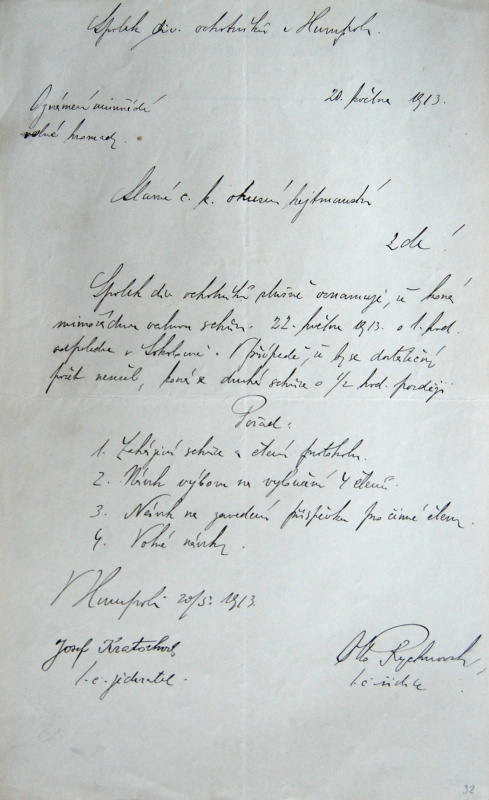 Spolek div. ochotníků v Humpolci.
20. května 1913.
Oznámení mimořádné
valné hromady.
Slavné c. k. okresní hejtmanství
Zde!
Spolek div. ochotníků slušně oznamuje, že koná
mimořádnou valnou schůzi. 22. května 1913. o 1. hod.
odpoledne v Sokolovně. V případě, že by se dostatečný
počet nesešel, koná se druhá schůze o 1/2 hod. později
Pořad:
1. Zahájení schůze a čtení protokolu.
2. Návrh výboru na vyloučení 4 členů.
3. Návrh na zavedení příspěvku pro činné členy.
4. Volné návrhy.
V Humpolci 20/5. 1913.
Josef Kratochvíl
t. č. jednatel.
Otto Rychnovský
t. č.
32